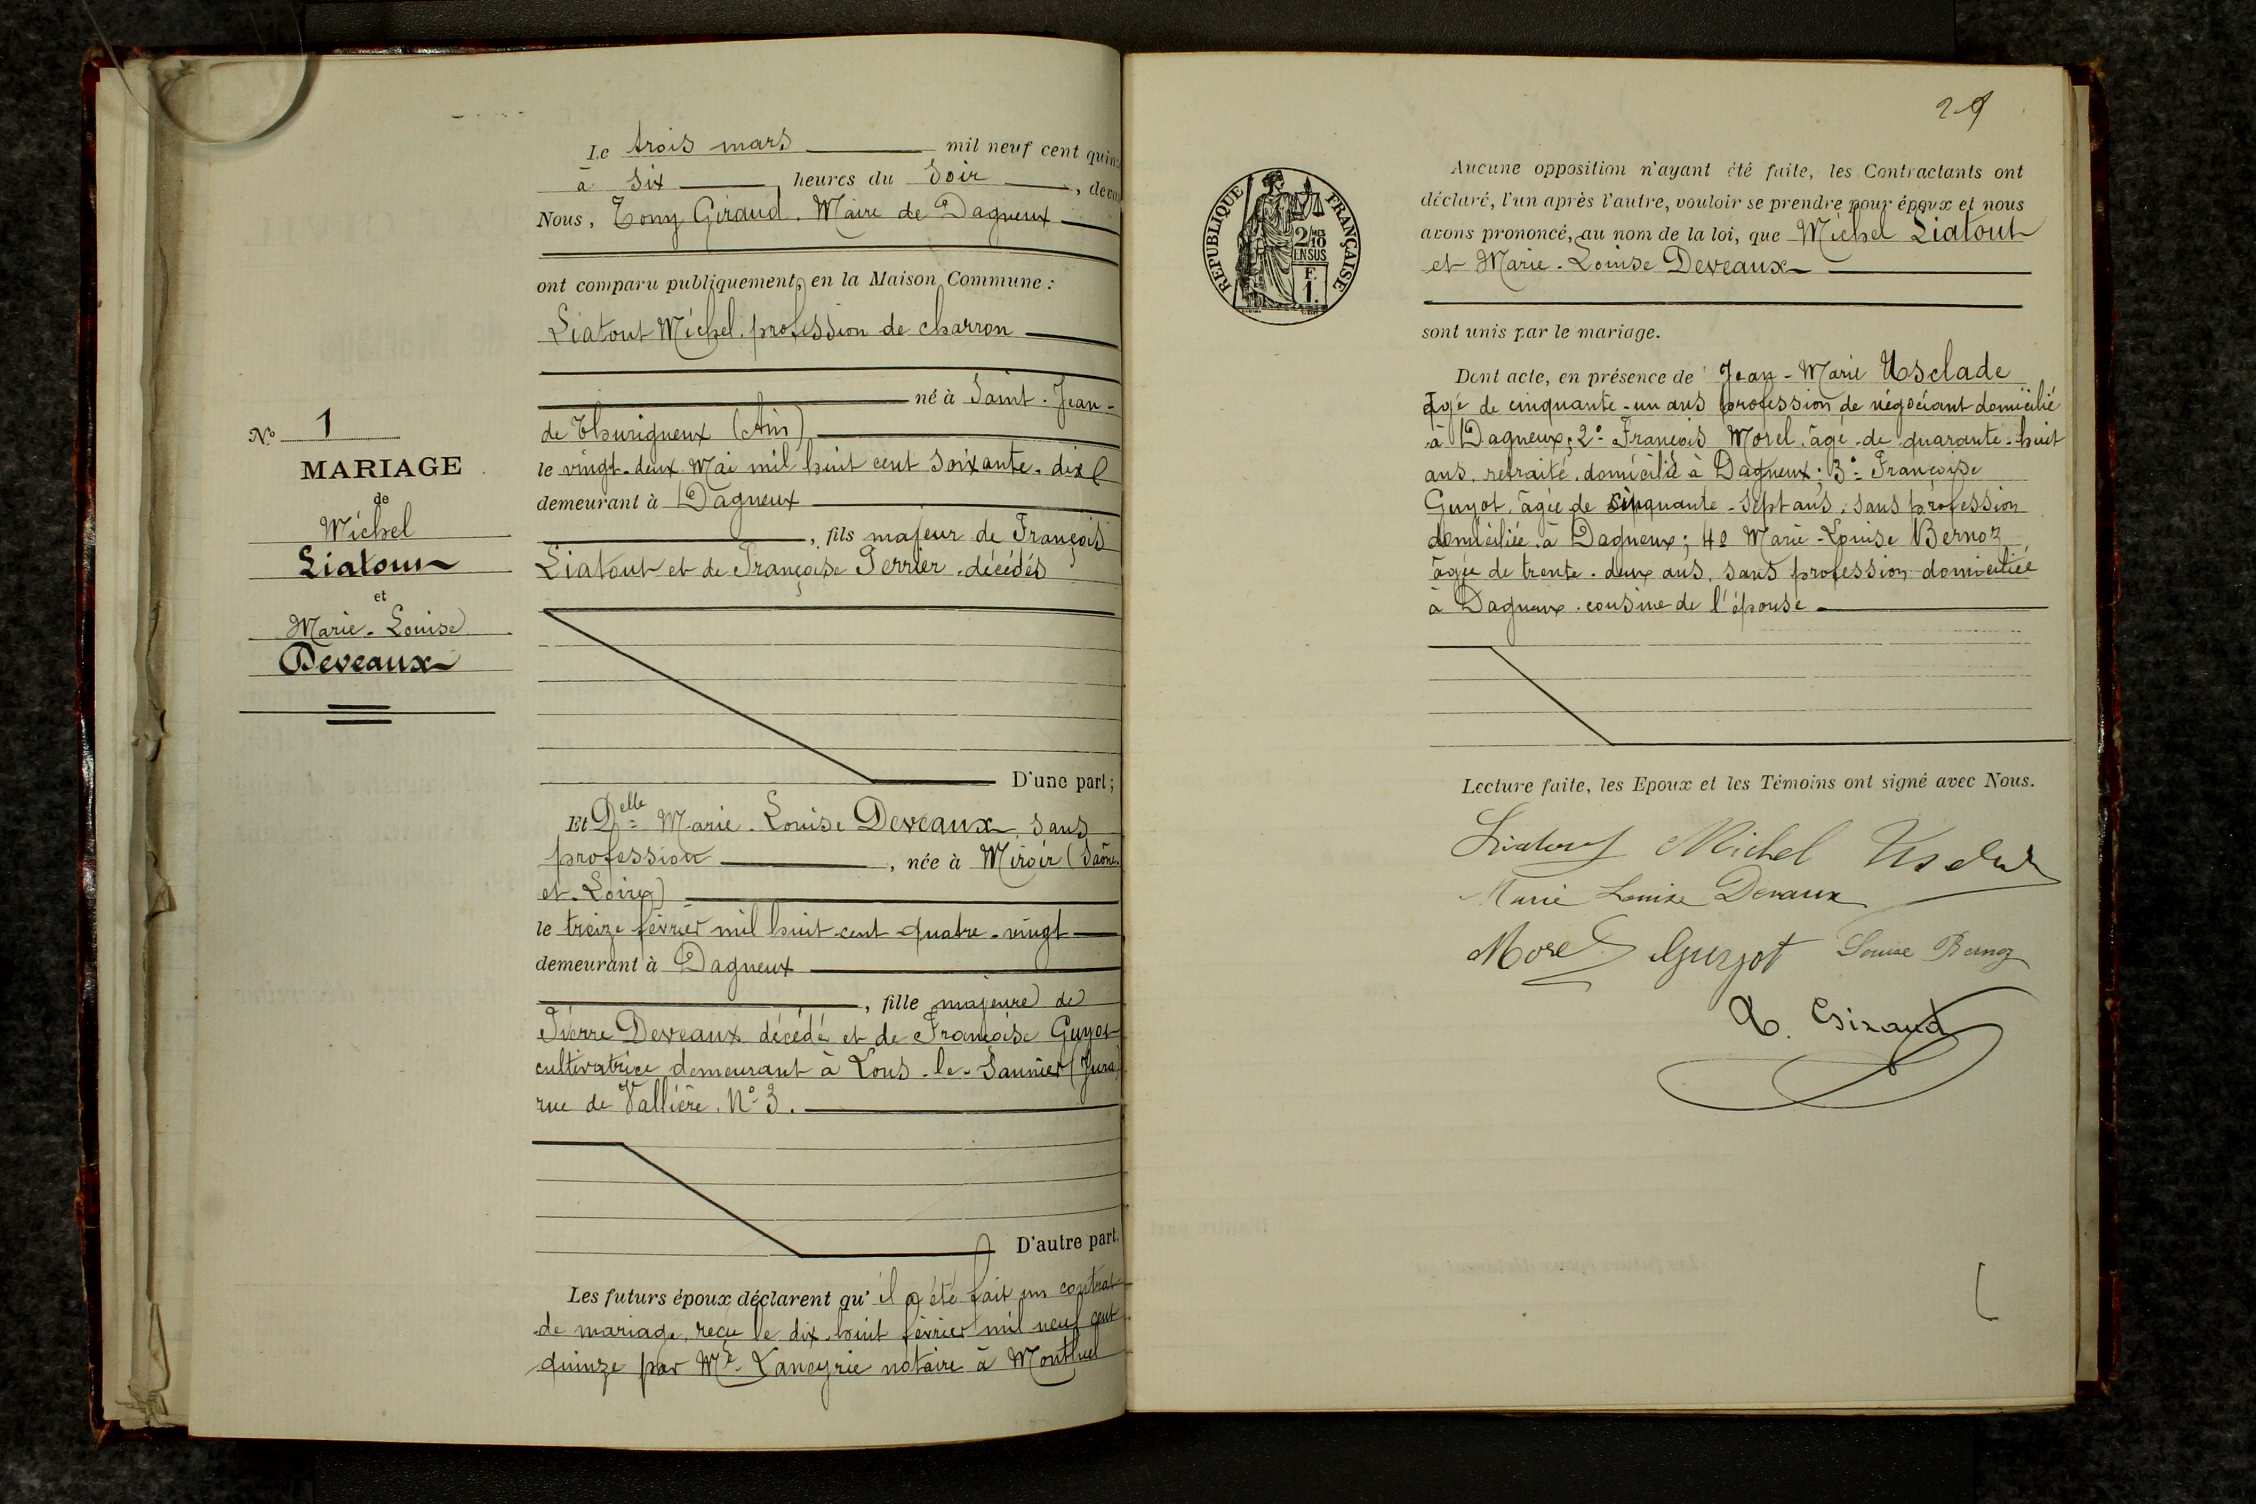 Le trois mars mil neuf cent quin
à six heures du soir, deva
Nous, Tony Giraud. Maire de Dagneux
ont comparu publiquement, en la Maison Commune :
Liatout Michel. profession de charron
né à Saint-Jean-
de Thurigneux (Ain)
le vingt-deux Mai mil huit cent soixante-dix
demeurant à Dagneux
, fils majeur de François
Liatout et de Françoise Perrier, décédés
D'une part ;
Et Delle Marie-Louise Deveaux, sans
profession, née à Miroir (Saône-
et-Loire)
le treize février mil huit cent quatre-vingt
demeurant à Dagneux
, fille majeure de
Pierre Deveaux décédé et de Françoise Guyot
cultivatrice demeurant à Lons-le-Saunier (Jura)
rue de Vallière. N° 3.
D'autre part.
Les futurs époux déclarent qu'il a été fait un contrat
de mariage, reçu le dix-huit février mil neuf cent
quinze par Me Laneyrie notaire à Montluel
N° 1
MARIAGE
de
Michel
Liatout
et
Marie-Louise
Deveaux
29
RÉPUBLIQUE FRANÇAISE
2/10
EN SUS
F.
1.
Aucune opposition n'ayant été faite, les Contractants ont
déclaré, l'un après l'autre, vouloir se prendre pour époux et nous
avons prononcé, au nom de la loi, que Michel Liatout
et Marie-Louise Deveaux
sont unis par le mariage.
Dont acte, en présence de Jean-Marie Usclade
âgé de cinquante-un ans profession de négociant domicilié
à Dagneux; 2° François Morel, âgé de quarante-huit
ans, retraité, domicilié à Dagneux; 3° Françoise
Guyot, âgée de cinquante-sept ans, sans profession
domiciliée à Dagneux; 4° Marie-Louise Bernoz
âgée de trente-deux ans, sans profession domiciliée
à Dagneux. cousine de l'épouse
Lecture faite, les Epoux et les Témoins ont signé avec Nous.
Liatout Michel Usclade
Marie Louise Devaux
Morel Guyot Louise Bernoz
T. Giraud